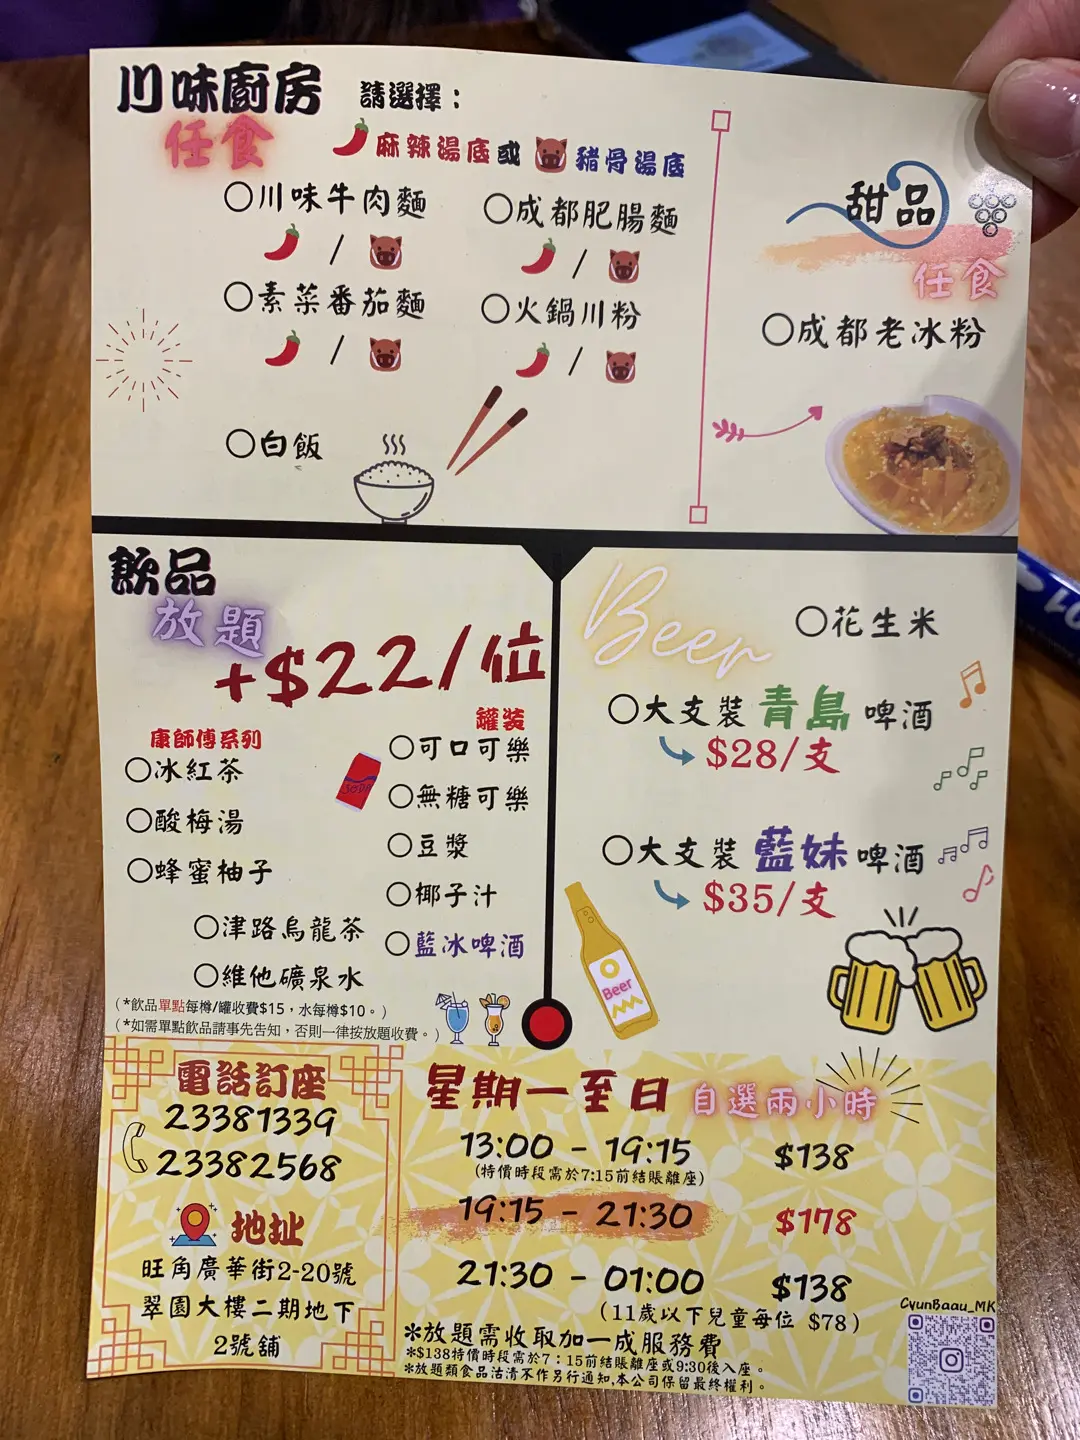 川味廚房
任食
請選擇：
麻辣湯底或 豬骨湯底
〇川味牛肉麵
/
〇成都肥腸麵
/
〇素菜番茄麵
/
〇火鍋川粉
/
〇白飯
甜品
任食
〇成都老冰粉
飲品
放題
+$22/位
康師傅系列
〇冰紅茶
〇酸梅湯
〇蜂蜜柚子
〇津路烏龍茶
〇維他礦泉水
罐裝
〇可口可樂
〇無糖可樂
〇豆漿
〇椰子汁
〇藍冰啤酒
SODA
(*飲品單點每樽/罐收費$15，水每樽$10。)
(*如需單點飲品請事先告知，否則一律按放題收費。)
Beer
〇花生米
〇大支裝青島啤酒
$28/支
〇大支裝藍妹啤酒
$35/支
Beer
電話訂座
23381339
23382568
地址
旺角廣華街2-20號
翠園大樓二期地下
2號舖
星期一至日 自選兩小時
13:00 - 19:15 $138
(特價時段需於7:15前結賬離座)
19:15 - 21:30 $178
21:30 - 01:00 $138
(11歲以下兒童每位 $78)
*放題需收取加一成服務費
*$138特價時段需於7：15前結賬離座或9:30後入座。
*放題類食品沽清不作另行通知,本公司保留最終權利。
CyunBaau_MK